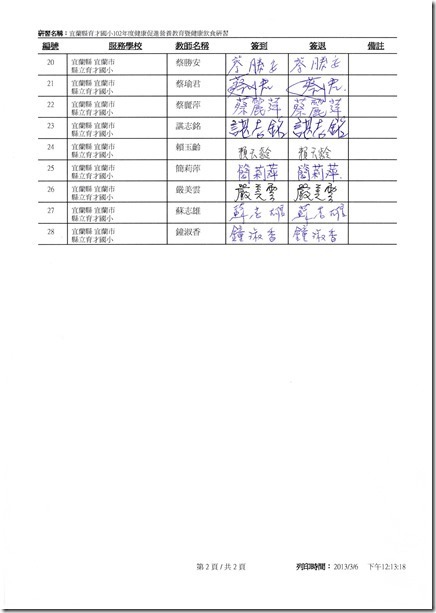 研習名稱：宜蘭縣育才國小102年度健康促進營養教育暨健康飲食研習
編號 服務學校 教師名稱 簽到 簽退 備註
20 宜蘭縣 宜蘭市 縣立育才國小 蔡勝安 蔡勝安 蔡勝安
21 宜蘭縣 宜蘭市 縣立育才國小 蔡瑜君
22 宜蘭縣 宜蘭市 縣立育才國小 蔡麗萍 蔡麗萍 蔡麗萍
23 宜蘭縣 宜蘭市 縣立育才國小 諶志銘 諶志銘 諶志銘
24 宜蘭縣 宜蘭市 縣立育才國小 賴玉齡 賴玉齡 賴玉齡
25 宜蘭縣 宜蘭市 縣立育才國小 簡莉萍 簡莉萍 簡莉萍
26 宜蘭縣 宜蘭市 縣立育才國小 嚴美雲 嚴美雲 嚴美雲
27 宜蘭縣 宜蘭市 縣立育才國小 蘇志雄 蘇志雄 蘇志雄
28 宜蘭縣 宜蘭市 縣立育才國小 鐘淑香 鐘淑香 鐘淑香
第 2 頁 / 共 2 頁 列印時間： 2013/3/6 下午12:13:18